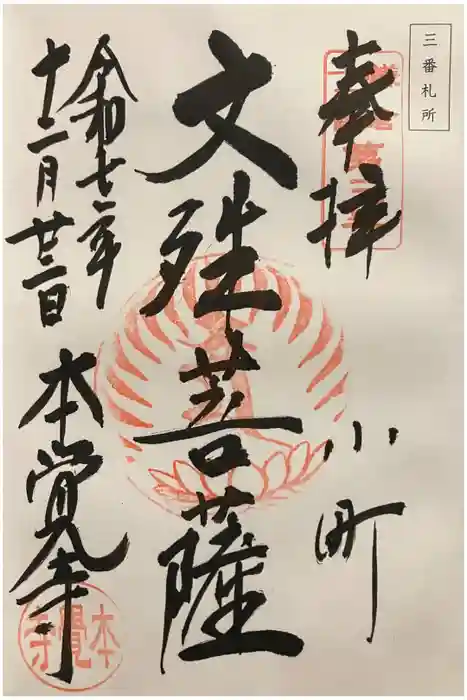 三番札所
奉拝
小町
文殊菩薩
令和七年
十二月廿二日
本覚寺
本覺寺